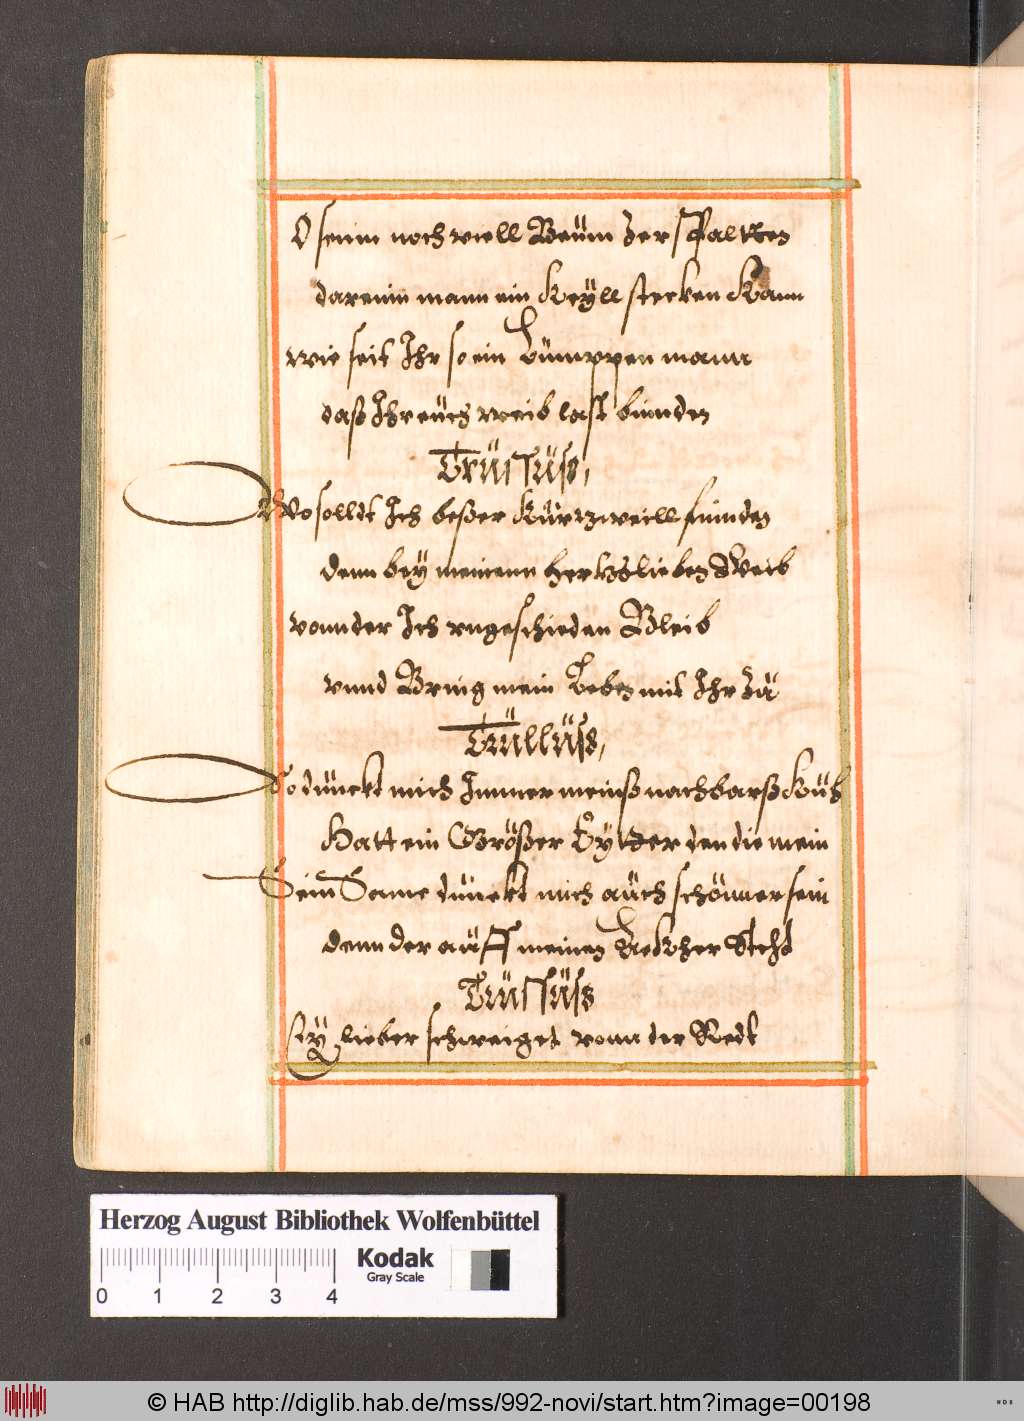 O seinn noch viell Beüm zerspaltten
dareinn mann ein Keyll stecken Kann
wie seit Ihr so ein Lümppen mann
daß Ihr eüch weib last binnden
Trüllüß,
Wo solldt Ich beßer Kürtzweill finnden
denn bey meinenn hertzlieben Weib
vonn der Ich vngeschieden Bleib
vnnd Bring mein Leben mit Ihr zü
Trüllüß,
So dünckt mich Immer meinß nachbarß Küh
Hatt ein Größer Eytter den die mein
Sein Same dünckt mich aüch schönner sein
denn der aüff meinen Ackher Steht
Trüllüß
Ey lieber schweiget vonn der Redt
Herzog August Bibliothek Wolfenbüttel
Kodak
Gray Scale
0 1 2 3 4
© HAB http://diglib.hab.de/mss/992-novi/start.htm?image=00198